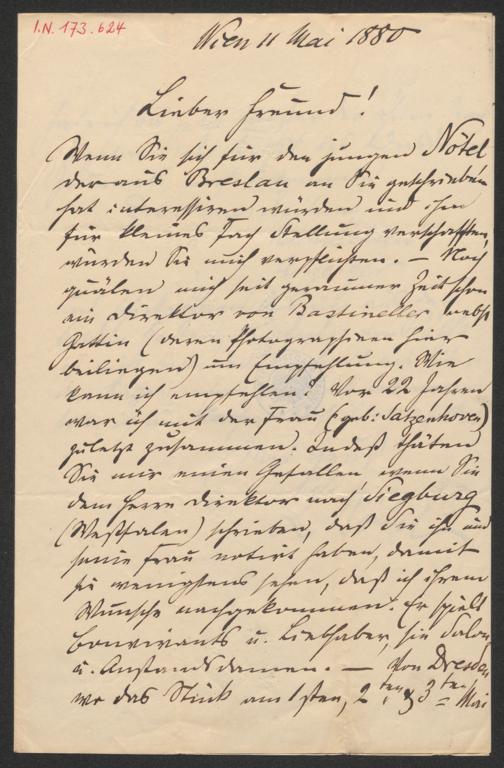 I.N. 173.624
Wien 11 Mai 1880
Lieber Freund!
Wenn Sie sich für den jungen Nötel
der aus Breslau an Sie geschrieben
hat interessiren würden und ihm
für kleines Fach Stellung verschafften,
würden Sie mich verpflichten. — Noch
quälen mich seit geraumer Zeit schon
ein Direktor von Bastineller nebst
Gattin (deren Photographieen hier
beiliegen) um Empfehlung. Wie
kann ich empfehlen? Vor 22 Jahren
war ich mit der Frau (geb: Satzenhoven)
zuletzt zusammen. Indeß thäten
Sie mir einen Gefallen wenn Sie
dem Herrn Direktor nach Siegburg
(Westfalen) schrieben, daß Sie ihn und
seine Frau notirt haben, damit
sie wenigstens sehen, daß ich ihrem
Wunsche nachgekommen. Er spielt
Bonvivants u. Liebhaber, sie Salon
u. Anstandsdamen. — Von Dresden
wo das Stück am 1sten, 2ten & 3ten Mai